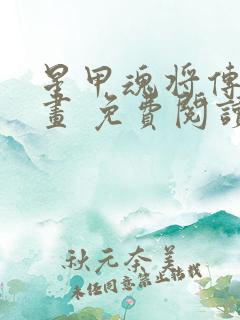 星甲魂将傳
畫 免費閱讀
秋元奈美
未经同意禁止转载